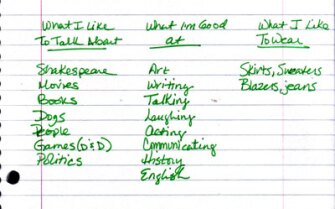 What I Like
To Talk About
Shakespeare
Movies
Books
Dogs
People
Games (D&D)
Politics
What Im Good
at
Art
Writing
Talking
Laughing
Acting
Communicating
History
English
What I Like
To Wear
Skirts, Sweaters
Blazers, jeans